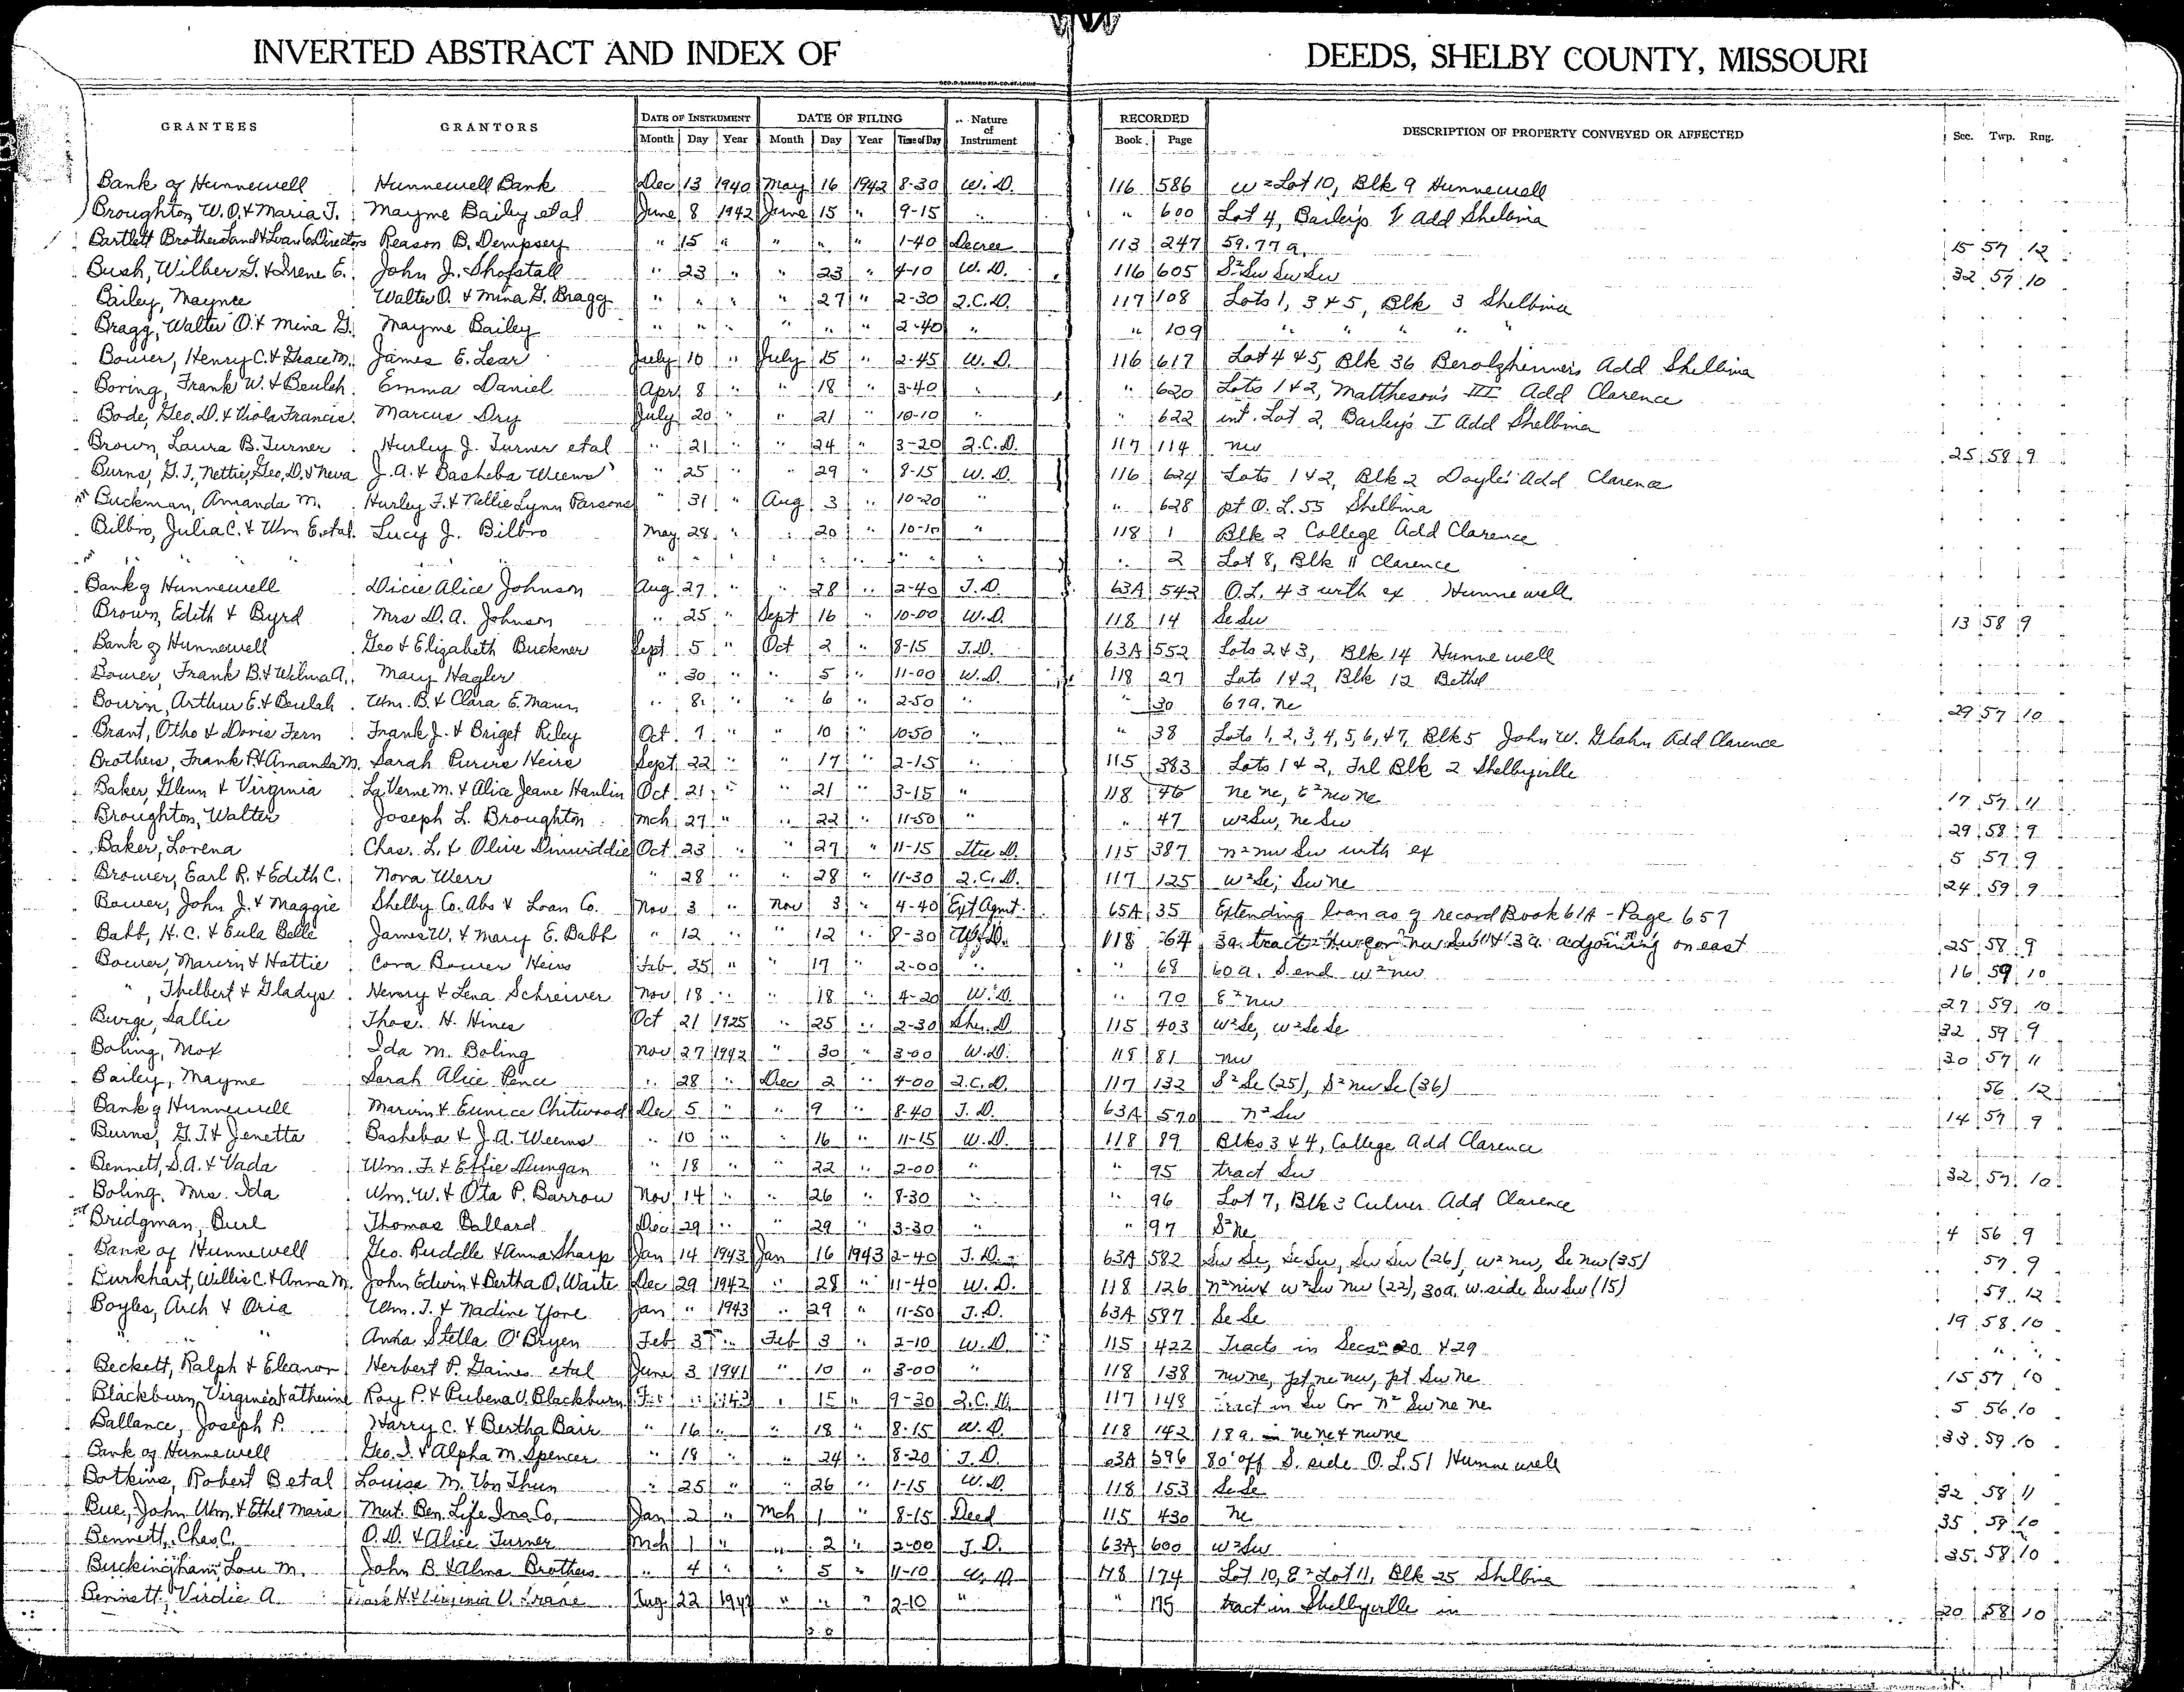 INVERTED ABSTRACT AND INDEX OF DEEDS, SHELBY COUNTY, MISSOURI
GRANTEES GRANTORS DATE OF INSTRUMENT DATE OF FILING Nature of Instrument RECORDED DESCRIPTION OF PROPERTY CONVEYED OR AFFECTED Sec. Twp. Rng.
Month Day Year Month Day Year Time of Day Book Page
Bank of Hunnewell Hunnewell Bank Dec 13 1940 May 16 1942 8-30 W.D. 116 586 W 2 Lot 10, Blk 9 Hunnewell
Broughton W.O. & Maria J. Mayme Bailey et al June 8 1942 June 15 " 9-15 " " 600 Lot 4, Bailey's I Add Shelbina
Bartlett Brothers Land & Loan Co Directors Reason B. Dempsey " 15 " " " " 1-40 Decree 113 247 59.77 a. 15 57 12
Bush, Wilber G. & Irene E. John J. Shofstall " 23 " " 23 " 4-10 W.D. 116 605 S2 Sw Sw Sw 32 57 10
Bailey, Mayme Walter O. & Mina G. Bragg " " " " 27 " 2-30 Q.C.D. 117 108 Lots 1, 3 & 5, Blk 3 Shelbina
Bragg, Walter O. & Mina G. Mayme Bailey " " " " " " 2-40 " " 109 " " " " "
Bower, Henry C. & Grace M. James E. Lear July 10 " July 15 " 2-45 W.D. 116 617 Lot 4 & 5, Blk 36 Berolzheimer's Add Shelbina
Boring, Frank W. & Beulah Emma Daniel Apr 8 " " 18 " 3-40 " " 620 Lots 1 & 2, Mattheson's III Add Clarence
Bode, Geo. D. & Viola Francis Marcus Dry July 20 " " 21 " 10-10 " " 622 int. Lot 2, Bailey's I Add Shelbina
Brown, Laura B. Turner Hurley J. Turner et al " 21 " " 24 " 3-20 Q.C.D. 117 114 nw 25 58 9
Burns, G.T, Nettie, Geo, D. & Neva J.A. & Basheba Weems " 25 " 29 " 8-15 W.D. 116 624 Lots 1 & 2, Blk 2 Doyle's Add Clarence
Buckman, Amanda M. Hurley F. & Nellie Lynn Parsons " 31 " Aug 3 " 10-20 " " 628 pt O.L. 55 Shelbina
Bilbro, Julia C. & Wm E. et al. Lucy J. Bilbro May 28 " " 20 " 10-10 " 118 1 Blk 2 College Add Clarence
" " " " " " " " " " " 2 Lot 8, Blk 11 Clarence
Bank of Hunnewell Dicie Alice Johnson Aug 27 " " 28 " 2-40 T.D. 63A 542 O.L. 43 with ex Hunnewell
Brown, Edith & Byrd Mrs D.A. Johnson " 25 " Sept 16 " 10-00 W.D. 118 14 Se Sw 13 58 9
Bank of Hunnewell Geo & Elizabeth Buckner Sept 5 " Oct 2 " 8-15 T.D. 63A 552 Lots 2 & 3, Blk 14 Hunnewell
Bower, Frank B. & Welma A. Mary Hagler " 30 " " 5 " 11-00 W.D. 118 27 Lots 1 & 2, Blk 12 Bethel
Bourn, Arthur E. & Beulah Wm. B. & Clara E. Mann " 8 " " 6 " 2-50 " " 30 67 a. ne 29 57 10
Brant, Otho & Doris Fern Frank J. & Briget Riley Oct. 7 " " 10 " 10-50 " " 38 Lots 1, 2, 3, 4, 5, 6, & 7, Blk 5 John W. Glahn Add Clarence
Brothers, Frank P. & Amanda M. Sarah Heirs Sept 22 " " 17 " 2-15 " 115 383 Lots 1 & 2, Frl Blk 2 Shelbyville
Baker, Glenn & Virginia La Verne M. & Alice Jeane Hanlin Oct 21 " " 21 " 3-15 " 118 46 ne ne, E2 nw ne 17 57 11
Broughton, Walter Joseph L. Broughton Mch 27 " " 22 " 11-50 " " 47 W2 Sw, ne Sw 29 58 9
Baker, Lorena Chas. L. & Olive Dinwiddie Oct 23 " " 27 " 11-15 Stee D. 115 387 n2 nw Sw with ex 5 57 9
Brower, Earl R. & Edith C. Nova Werr " 28 " " 28 " 11-30 Q.C.D. 117 125 W2 Se; Sw ne 24 59 9
Bower, John J. & Maggie Shelby Co. Abs & Loan Co. Nov 3 " Nov 3 " 4-40 Ext Agmt. 65A 35 Extending loan as of record Book 61A - Page 657
Babb, H.C. & Eula Belle James W. & Mary E. Babb " 12 " 12 " 8-30 W.D. 118 64 3a. tract nw cor nw Sw & 3 a. adjoining on east 25 58 9
Bower, Marvin & Hattie Cora Bower Heirs Feb. 25 " " 17 " 2-00 " " 68 60 a. S. end W2 nw 16 59 10
" , Thelbert & Gladys Henry & Lena Schreiver Nov 18 " " 18 " 4-20 W.D. " 70 E2 nw 27 59 10
Burge, Sallie Thos. H. Hines Oct 21 1925 " 25 " 2-30 Sher. D. 115 403 W2 Se, W2 Se Se 32 59 9
Boling, Mox Ida M. Boling Nov 27 1942 " 30 " 3-00 W.D. 118 81 nw 30 57 11
Bailey, Mayme Sarah Alice Pence " 28 " Dec 2 " 4-00 Q.C.D. 117 132 S2 Se (25), S2 nw Se (36) 56 12
Bank of Hunnewell Marvin & Eunice Chitwood Dec 5 " " 9 " 8-40 T.D. 63A 570 n2 Sw 14 57 9
Burns, G.T. & Jenetta Basheba & J.A. Weems " 10 " " 16 " 11-15 W.D. 118 89 Blks 3 & 4, College Add Clarence
Bennett, S.A. & Vada Wm. F. & Effie Dungan " 18 " " 22 " 2-00 " " 95 tract Sw 32 57 10
Boling, Mrs. Ida Wm. W. & Ota P. Barrow Nov 14 " " 26 " 8-30 " " 96 Lot 7, Blk 3 Culver Add Clarence
Bridgman, Burl Thomas Ballard Dec 29 " " 29 " 3-30 " " 97 S2 ne 4 56 9
Bank of Hunnewell Geo. Ruddle & Anna Sharp Jan 14 1943 Jan 16 1943 2-40 T.D. 63A 582 Sw Se, Se Sw, Sw Sw (26), W2 nw, Se nw (35) 57 9
Burkhart, Willis C & Anna M. John Edwin & Bertha O. Waite Dec 29 1942 " 28 " 11-40 W.D. 118 126 n2 nw & W2 Sw nw (22), 30a. w. side Sw Sw (15) 59 12
Boyles, Arch & Oria Wm. T. & Nadine Yore Jan " 1943 " 29 " 11-50 T.D. 63A 587 Se Se 19 58 10
" " Anna Stella O'Bryen Feb 3 " Feb 3 " 2-10 W.D. 115 422 Tracts in Secs 20 & 29 " "
Beckett, Ralph & Eleanor Herbert P. Gaines et al June 3 1941 " 10 " 3-00 " 118 138 nw ne, pt ne nw, pt Sw ne 15 57 10
Blackburn, Virginea Katherine Roy P. & Rubena V. Blackburn 15 " 9-30 Q.C.D. 117 148 tract in Sw Cor n2 Sw ne ne 5 56 10
Ballance, Joseph P. Harry C. & Bertha Bair " 16 " " 18 " 8-15 W.D. 118 142 18 a. ne ne & nw ne 33 59 10
Bank of Hunnewell Geo. T. & Alpha M. Spencer " 18 " 24 " 8-20 T.D. 63A 596 80' off S. side O.L. 51 Hunnewell
Botkins, Robert B et al Louisa M. Von Thun " 25 " " 26 " 1-15 W.D. 118 153 Se Se 32 58 11
Bue, John Wm. & Ethel Marie Mut. Ben. Life Ins Co. Jan 2 " Mch 1 " 8-15 Deed 115 430 ne 35 59 10
Bennett, Chas C. O.D. & Alice Turner Mch 1 " " 2 " 2-00 T.D. 63A 600 W2 Sw 35 58 10
Buckingham, Lou M. John B & Alma Brothers " 4 " " 5 " 11-10 W.D. 118 174 Lot 10, E2 Lot 11, Blk 25 Shelbina
Bennett, Virdie A. Aug 22 " " " 2-10 " " 175 tract in Shelbyville in 20 58 10